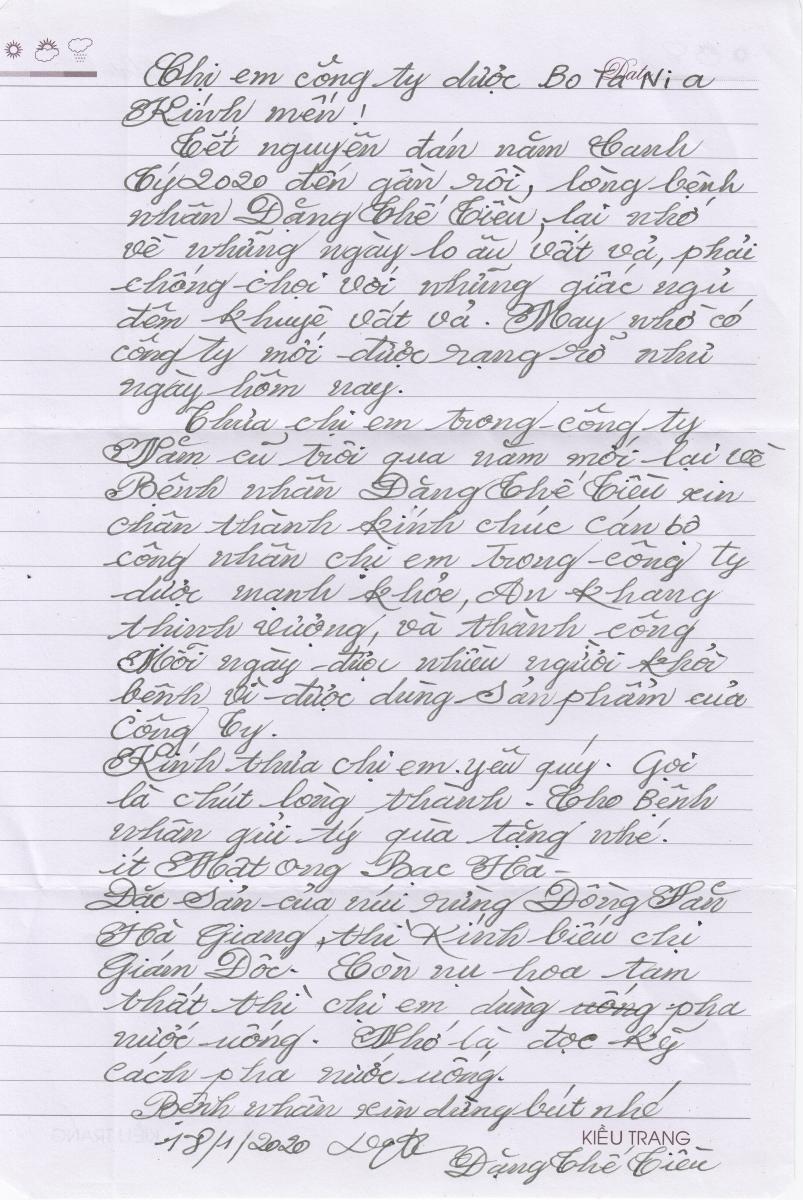 Chị em công ty dược Bo Ta Ni a
Kính mến!
Tết nguyên đán năm Canh
Tý 2020 đến gần rồi, lòng bệnh
nhân Đặng Thế Tiều, lại nhớ
về những ngày lo âu vất vả, phải
chống chọi với những giấc ngủ
đêm khuya vất vả. May nhờ có
công ty mới được rạng rỡ như
ngày hôm nay.
Thưa chị em trong công ty
Năm cũ trôi qua năm mới lại về
Bệnh nhân Đặng Thế Tiều xin
chân thành kính chúc cán bộ
công nhân chị em trong công ty
được mạnh khỏe, An khang
thịnh vượng, và thành công
Mỗi ngày được nhiều người khỏi
bệnh vì được dùng sản phẩm của
Công Ty.
Kính thưa chị em yêu quý. Gọi
là chút lòng thành. Cho Bệnh
nhân gửi tý quà tặng nhé.
ít Mật ong Bạc Hà -
Đặc sản của núi rừng Đồng Văn
Hà Giang, thì Kính biếu chị
Giám Đốc. Còn nụ hoa tam
thất thì chị em dùng uống pha
nước uống. Nhớ là đọc kỹ
cách pha nước uống.
Bệnh nhân xin dừng bút nhé
18/1/2020
KIỀU TRANG
Đặng Thế Tiều